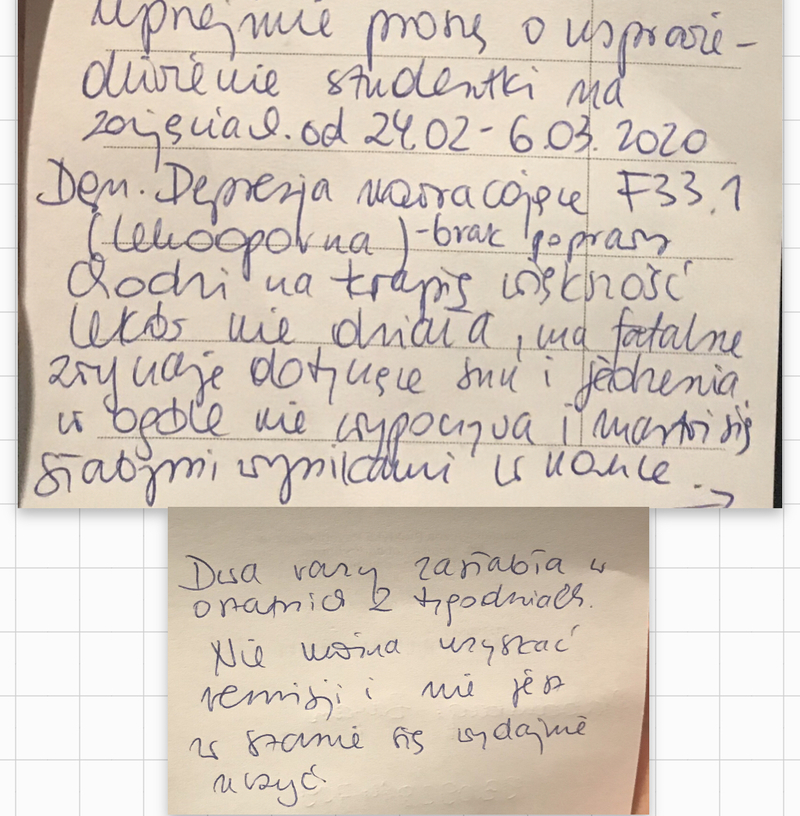 Uprzejmie proszę o usprawie-
dliwienie studentki na
zajęciach od 24.02 - 6.03. 2020
Depresja nawracające F33.1
(lekooporna) - brak poprawy
Chodzi na terapię większość
leków nie działa, ma fatalne
zwyczaje dotyczące snu i jedzenia.
w ogóle nie wypoczywa i martwi się
słabymi wynikami w nauce. →
Dwa razy zasłabła w
ostatnich 2 tygodniach.
Nie można uzyskać
remisji i nie jest
w stanie się wydajnie
uczyć.